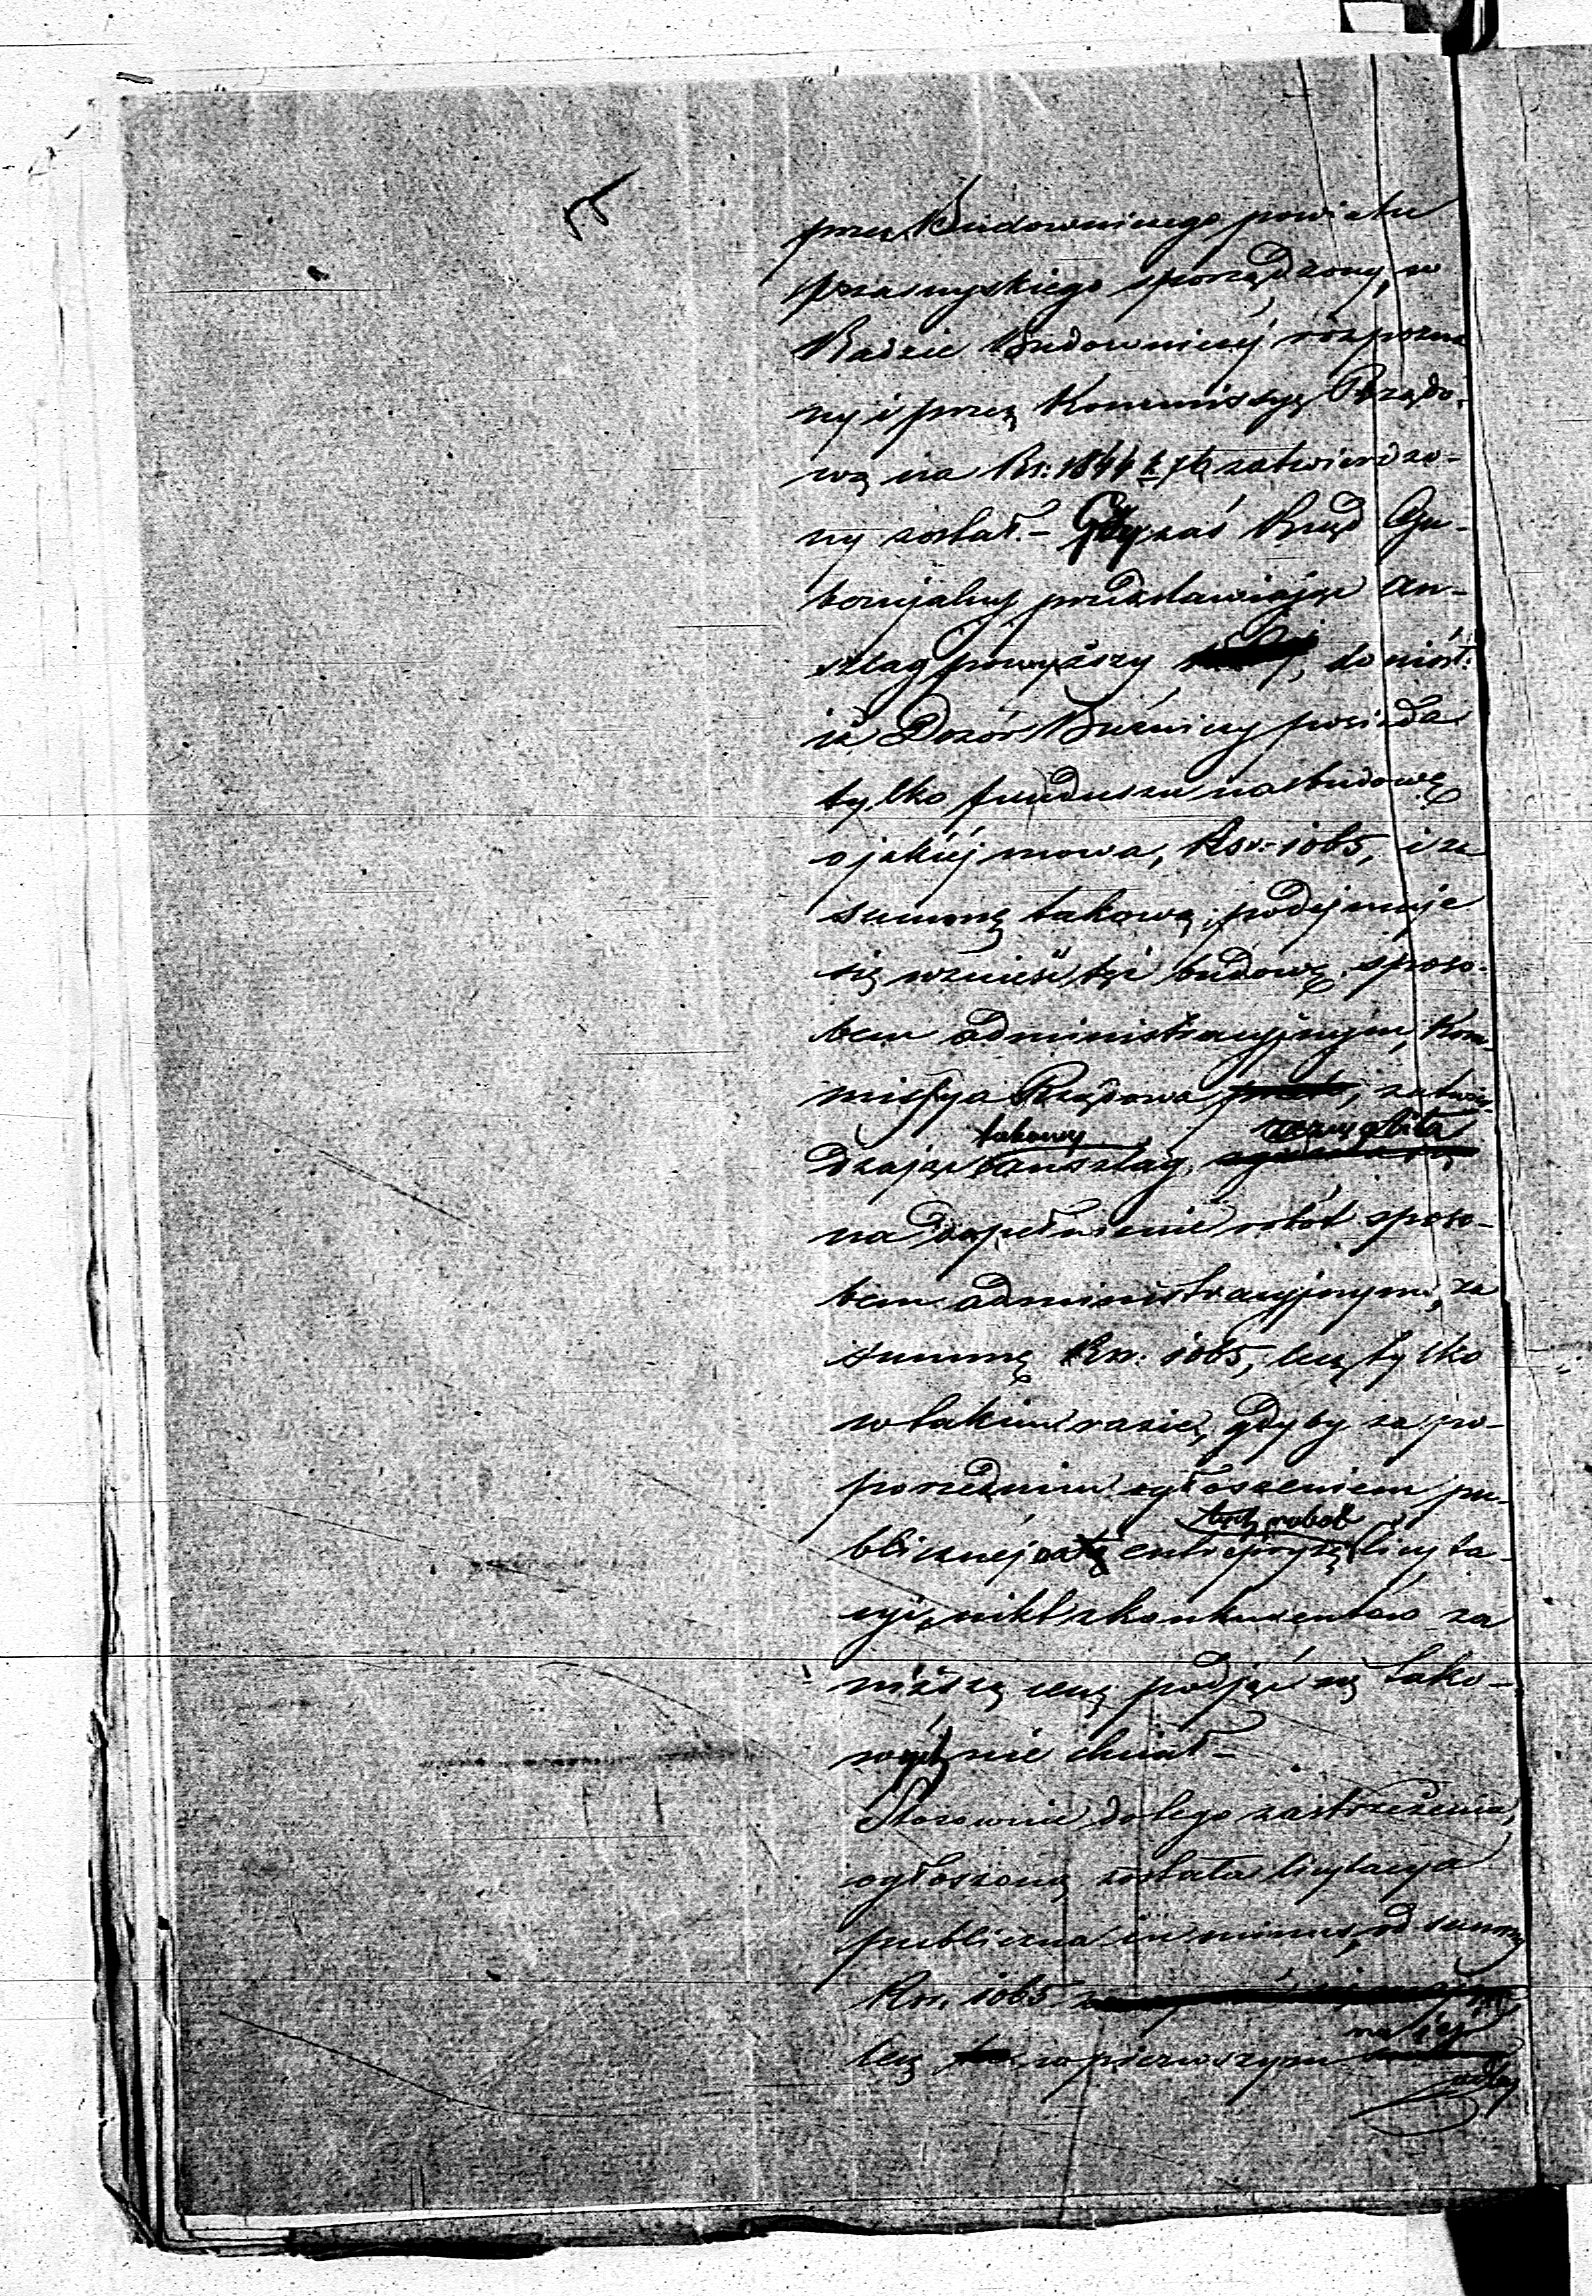 przez Budowniczego powiatu
przasnyskiego sporządzony, w
Radzie Budowniczéj rozpozna
ny i przez Kommissyę Rządo-
wą na Rs: 1844 k 76 zatwierdzo-
ny został. – Gdy zaś Rząd Gu-
bernjalny przedstawiając an-
szlag powyższy doniósł
iż Dozór Bóżniczy posiada
tylko funduszu na budowę
o jakiéj mowa, Rsr. 1065, i za
summę takową, podéjmuje
się wznieść tęż budowę sposo-
bem administracyjnym, Kom-
missya Rządowa zatwier-
takowy zezwoliła
dzając anszlag,
na dopełnienie robót sposo-
bem administracyjnym, za
summę Rsr: 1065, lecz tylko
w takim razie, gdyby za po-
przedniem ogłoszeniem pu-
tych robót
blicznéj na entrepryzę licyta-
cyi, nikt z konkurentów za
niższą cenę podjąć się tako-
wych nie chciał –
Stosownie do tego zastrzeżenia,
ogłoszoną została licytacya
publiczna in minus, od summy
Rsr. 1065
lecz w pierwszym